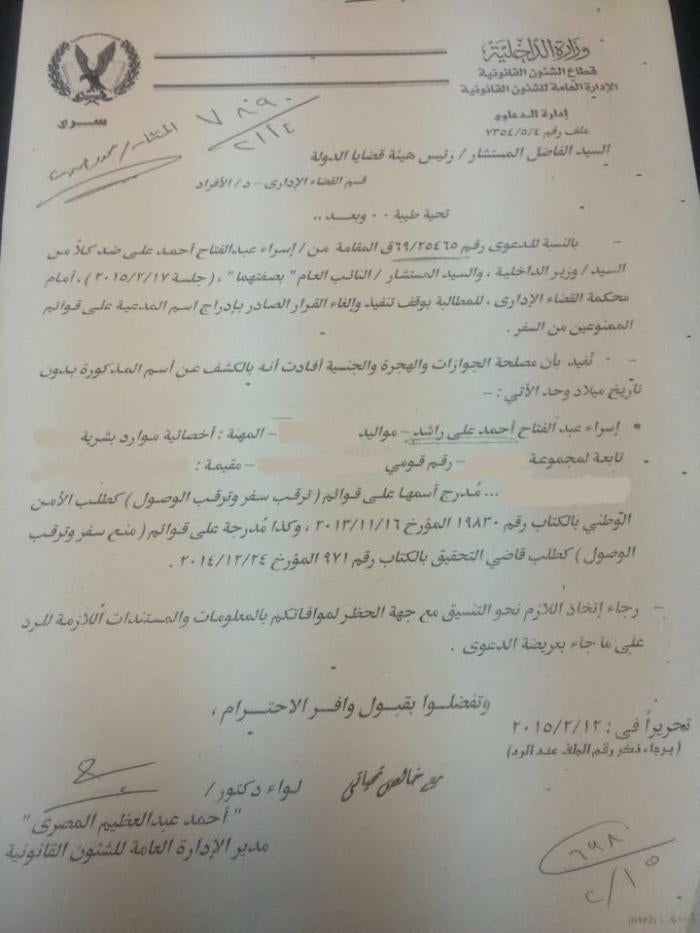 وزارة الداخلية
قطاع الشئون القانونية
الإدارة العامة للشئون القانونية
إدارة الدعاوى
ملف رقم ٧٣٥٤/٥/٤
سرى
٧٨٩٠
السيد الفاضل المستشار / رئيس هيئة قضايا الدولة
قسم القضاء الإدارى – د/الأفراد
تحية طيبة ٠٠ وبعد ،،
– بالنسبة للدعوى رقم ٦٩/٢٥٤٦٥ق المقامة من / إسراء عبدالفتاح أحمد على ضد كلاً من
السيد/ وزير الداخلية ، والسيد المستشار / النائب العام " بصفتهما " ، ( جلسة ٢٠١٥/٢/١٧ ) ، أمام
محكمة القضاء الإدارى ، للمطالبة بوقف تنفيذ وإلغاء القرار الصادر بإدراج اسم المدعية على قوائم
الممنوعين من السفر .
– نُفيد بأن مصلحة الجوازات والهجرة والجنسية أفادت أنه بالكشف عن أسم المذكورة بدون
تاريخ ميلاد وجد الآتي : –
• إسراء عبد الفتاح أحمد على راشد – مواليد – المهنة : أخصائية موارد بشرية
تابعة لمجموعة – رقم قومي – مقيمة :
... مُدرج أسمها على قوائم ( ترقب سفر وترقب الوصول ) كطلب الأمن
الوطني بالكتاب رقم ١٩٨٣٠ المؤرخ ٢٠١٣/١١/١٦ ، وكذا مُدرجة على قوائم ( منع سفر وترقب
الوصول ) كطلب قاضي التحقيق بالكتاب رقم ٩٧١ المؤرخ ٢٠١٤/١٢/٢٤ .
– رجاء إتخاذ اللازم نحو التنسيق مع جهة الحظر لموافاتكم بالمعلومات والمستندات اللازمة للرد
على ما جاء بعريضة الدعوى .
وتفضلوا بقبول وافر الاحترام ،
تحريراً فى : ٢٠١٥/٢/١٢
(برجاء ذكر رقم الملف عند الرد)
مع خالص تحياتى
لواء دكتور /
" أحمد عبدالعظيم المصرى "
مدير الإدارة العامة للشئون القانونية
٦٩٨